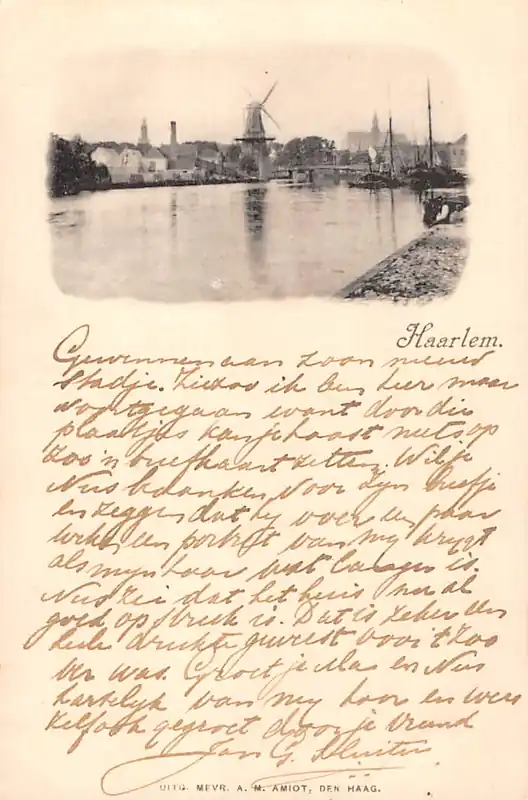 Haarlem.
Gewennen aan zoon nieuw
stadje. Ziezoo ik ben hier maar
voortgegaan want door die
plaatjes kan je haast niets op
zoo'n briefkaart zetten. Wil je
Nus bedanken voor zijn briefje
en zeggen dat hij over een paar
weken een portret van mij krijgt
als mijn haar wat langer is.
Nus zei dat het huis nu al
goed op streek is. Dat is zeker een
heele drukte geweest voor 't zoo
ver was. Groet je Ma en Nus
hartelijk van mij hoor en wees
zelf ook gegroet door je vriend
Jan G. Sluiter
UITG. MEVR. A. M. AMIOT, DEN HAAG.